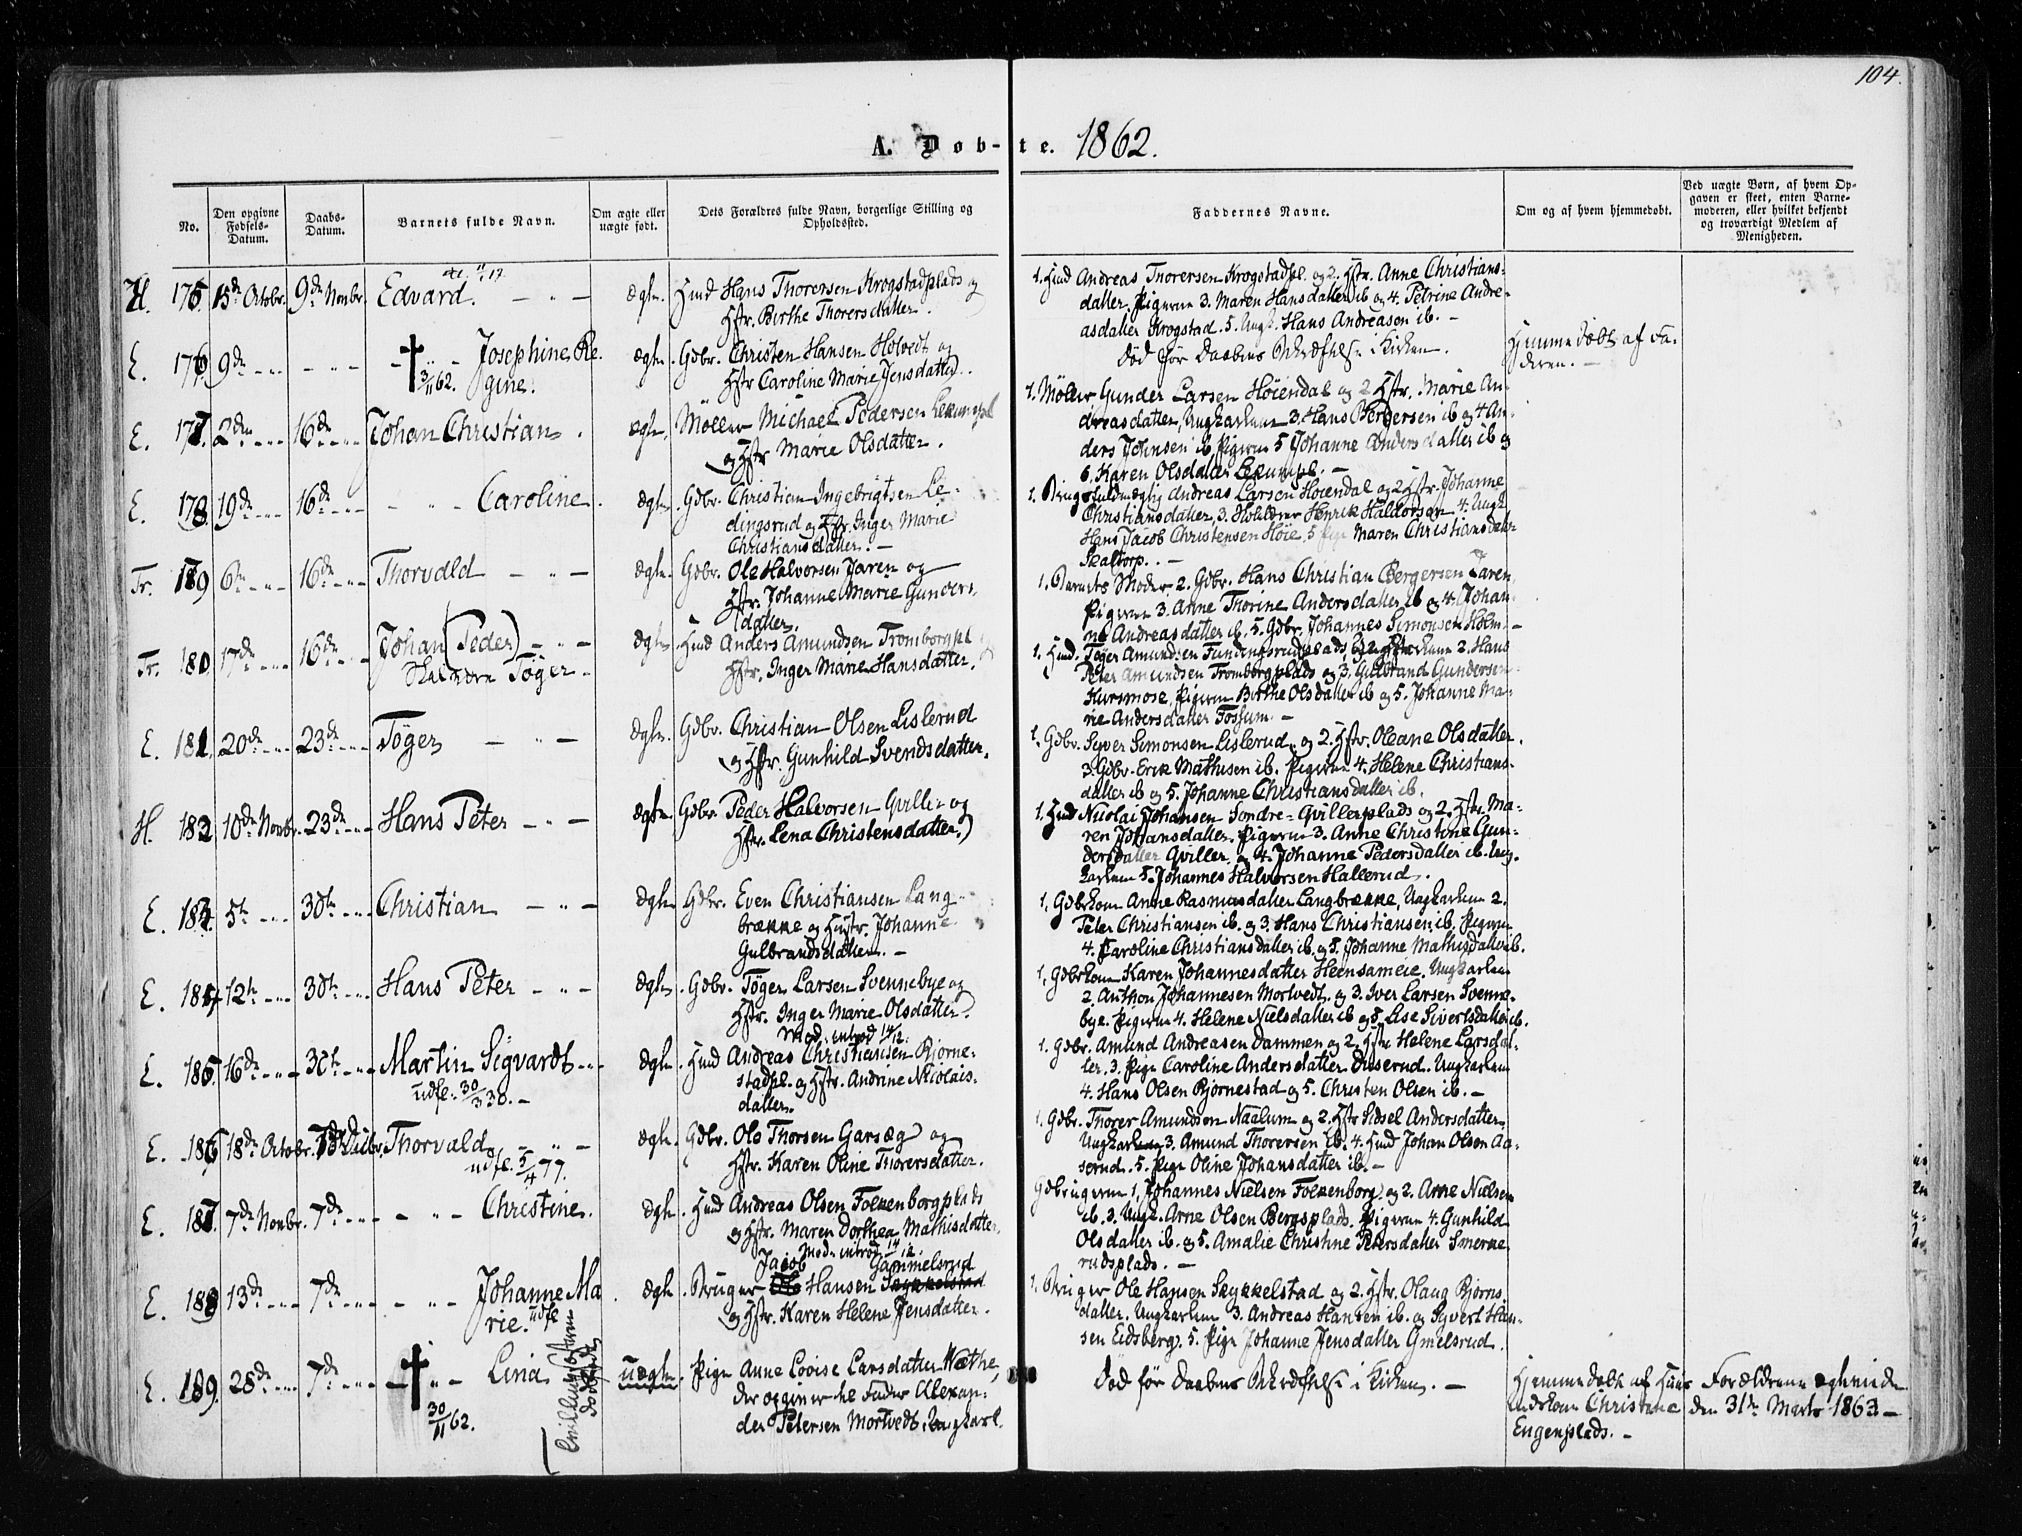 104.
A. Døb-te. 1862.
No.
Den opgivne Fødsels-Datum.
Daabs-Datum.
Barnets fulde Navn.
Om ægte eller uægte født.
Dets Forældres fulde Navn, borgerlige Stilling og Opholdssted.
Faddernes Navne.
Om og af hvem hjemmedøbt.
Ved uægte Børn, af hvem Opgaven er skeet, enten Barnemoderen, eller hvilket bekjendt og troværdigt Medlem af Menigheden.
H. 175 15de Octobr. 9de Novbr. Edvard. Ægte. Hmd Hans Thorersen Krogstadplads og
Hstr. Birthe Thorersdatter.
1. Hmd Andreas Thorersen Krogstadpl. og 2. Hstr. Anne Christians-
datter, Pigerne 3. Maren Hansdatter ib og 4. Petrine Andre-
asdatter Krogstad. 5. Ungk. Hans Andreasen ib. -
E. 176. 9de Josephine Re-
gine. 3/11 62. Ægte. Gdbr. Christen Hansen Holvedt og
Hstr Caroline Marie Jensdatter.
Død før Daabens Bekræftelse i Kirken.
Hjemmedøbt af Fa-
deren. -
E. 177. 2den 16de Johan Christian. Ægte. Møller Michael Pedersen Lekumpl
og Hstr Marie Olsdatter.
1. Møller Gunder Larsen Høiendal og 2 Hstr. Marie An-
dreasdatter, Ungkarlene 3. Hans Bergersen ib og 4 An-
ders Johnsen ib Pigerne 5 Johanne Andersdatter ib og
6. Karen Olsdatter Lekumpl. -
E. 178. 19de 16de Caroline. Ægte. Gdbr. Christian Ingebrigtsen Le-
dingsrud og Hstr. Inger Marie
Christiansdatter. -
1. Andreas Larsen Høiendal og 2 Hstr. Johanne
Christiansdatter, 3. Henrik Haldorsen 4. Ungk
Hans Jacob Christensen Høie, 5 Pige Maren Christiansdatter
Skaltorp. -
Tr. 179 6te 16de Thorvald Ægte. Gdbr. Ole Halvorsen Jaren og
Hstr. Johanne Marie Gunders-
datter.
1. Barnets Moder 2. Gdbr. Hans Christian Bergersen Jaren,
Pigerne 3. Anne Thorine Andersdatter ib og 4. Johan-
ne Andreasdatter ib. 5. Gdbr. Johannes Simonsen Holm. -
Tr. 180 17de 16de Johan (Peder)
Töger. Ægte. Hmd Anders Amundsen Tromborgpl
Hstr. Inger Marie Hansdatter.
1. Hmd. Töger Amundsen 2. Hans
Peter Amundsen Tromborgplads og 3. Gulbrand Gundersen
Kursmose, Pigerne Birthe Olsdatter ib og 5. Johanne Ma-
rie Andersdatter Fossum. -
E. 181. 20de 23de Töger Ægte. Gdbr. Christian Olsen Lislerud
og Hstr. Gunhild Svendsdatter.
1. Gdbr. Syver Simonsen Lislerud og 2. Hstr. Oleane Olsdatter.
3. Gdbr. Erik Mathisen ib. Pigerne 4. Helene Christians-
datter ib og 5. Johanne Christiansdatter ib.
H. 182 10de Novbr. 23de Hans Peter Ægte Gdbr Peder Halvorsen Gviller og
Hstr. Lena Christensdatter.
1. Hmd Nicolai Johansen Søndre-Gvillerplads og 2. Hstr. Ma-
ren Johansdatter. Pigerne 3. Anne Christine Gun-
dersdatter Gviller, og 4. Johanne Pedersdatter ib. Ung-
karlene 5. Johannes Halvorsen Hallerud.
E. 183. 5te 30te Christian Ægte. Gdbr. Even Christiansen Lang-
brække og Hustr. Johanne
Gulbrandsdatter. -
1. Gdbrkone Anne Rasmusdatter Langbrække, Ungkarlene 2.
Peter Christiansen ib. og 3. Hans Christiansen ib. Pigerne
4. Karoline Christiansdatter ib. og 5. Johanne Mathisdatter ib.
E. 184 12te 30te Hans Peter Ægte. Gdbr. Töger Larsen Svennebye og
Hstr. Inger Marie Olsdatter.
1. Gdbrkone Karen Johannesdatter Heensameie. Ungkarlene
2. Anthon Johannesen Mortvedt og 3. Iver Larsen Svenne-
bye. Pigerne 4. Helene Nielsdatter ib og 5. Lise Sivertsdatter ib.
Mod. introd 14/12.
E. 185. 16de 30te Martin Sigvardt
udfl. 30/3 38. - Ægte. Hmd Andreas Christiansen Bjørne-
stadpl. og Hstr. Andrine Nicolais-
datter.
1. Gdbr. Amund Andreasen Dammen og 2. Hstr Helene Larsdat-
ter. 3. Pige Caroline Andersdatter Ungkarlene
4. Hans Olsen Bjørnestad og 5. Christen Olsen ib. -
E. 186 18de Octobr. 7de Decbr. Thorvald
udfl. 5/4 77. Ægte. Gdbr. Ole Thorsen Garseg og
Hstr. Karen Oline Thorersdatter.
1. Gdbr. Thorer Amundsen Naalum og 2. Hstr Sidsel Andersdatter,
Ungkarlene 3. Amund Thorersen ib. 4. Hmd Johan Olsen Aa-
serud. 5. Pige Oline Johansdatter ib. -
E. 187. 7de Novbr. 7de Christine. Ægte. Hmd Andreas Olsen Folkenborgplads
og Hstr. Maren Dorthea Mathisdatter.
Mod. introd. 14/12.
Gdbrugerne 1, Johannes Nielsen Folkenborg og 2. Arne Nielsen
ib. 3. Ungk. Arne Olsen Bergsplads. Pigerne 4. Gunhild
Olsdatter ib. og 5. Amalie Christine Petersdatter Smerke-
rudsplads. -
E. 188 13de 7de Johanne Ma-
rie. udfl Ægte. Jacob Gammelsrud
Bruger Ole Hansen Skykkelstad
og Hstr. Karen Helene Jensdatter.
1. Bruger Ole Hansen Skykkelstad og 2. Hstr. Olaug Bjørns-
datter. Ungkarlene 3. Andreas Hansen ib. og Syvert Han-
sen Eidsberg. 5. Pige Johanne Jensdatter Gmelsrud.
E. 189. 28de 7de Lina 30/11 62. Uægte. Pige Anne Lovise Larsdatter
Der opgiver til Fader Alexan-
der Petersen Mortvedt, Ungkarl.
Død før Daabens Bekræftelse i Kirken. -
Hjemmedøbt af Huus-
mandskone Christine
Engenplads. -
Forældrene ægteviede
den 31te Marts 1863. -